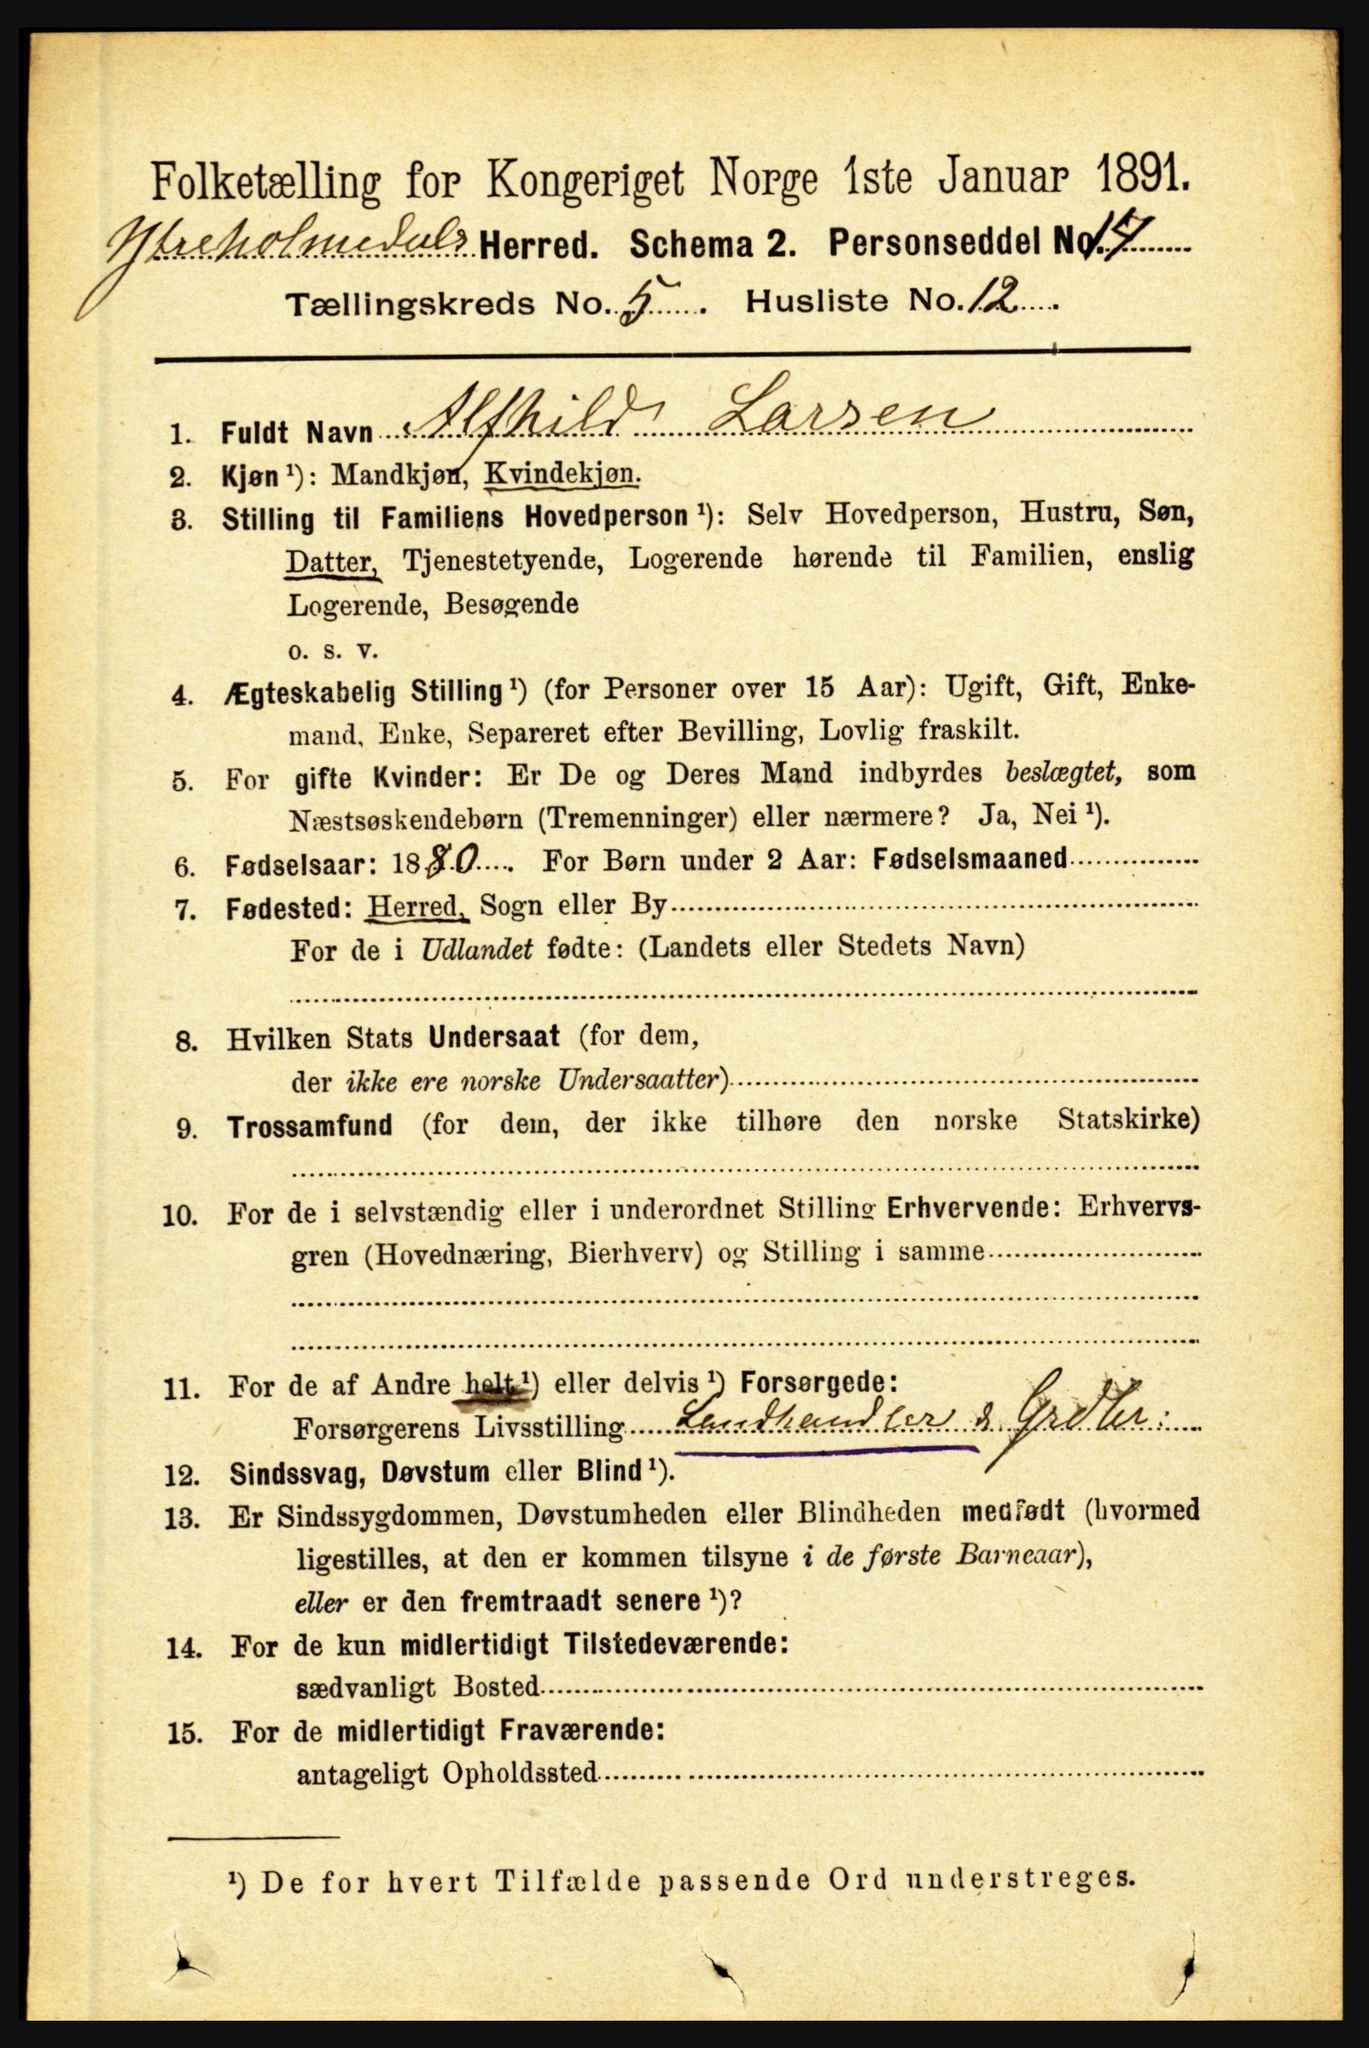 Folketælling for Kongeriget Norge 1ste Januar 1891.
Ytreholmedals Herred. Schema 2. Personseddel No. 17
Tællingskreds No. 5. Husliste No. 12.
1. Fuldt Navn Alfhild Larsen
2. Kjøn ¹): Mandkjøn, Kvindekjøn.
3. Stilling til Familiens Hovedperson ¹): Selv Hovedperson, Hustru, Søn,
Datter, Tjenestetyende, Logerende hørende til Familien, enslig
Logerende, Besøgende
o. s. v.
4. Ægteskabelig Stilling ¹) (for Personer over 15 Aar): Ugift, Gift, Enke-
mand, Enke, Separeret efter Bevilling, Lovlig fraskilt.
5. For gifte Kvinder: Er De og Deres Mand indbyrdes beslægtet, som
Næstsøskendebørn (Tremenninger) eller nærmere? Ja, Nei ¹).
6. Fødselsaar: 1880. For Børn under 2 Aar: Fødselsmaaned
7. Fødested: Herred, Sogn eller By
For de i Udlandet fødte: (Landets eller Stedets Navn)
8. Hvilken Stats Undersaat (for dem,
der ikke ere norske Undersaatter)
9. Trossamfund (for dem, der ikke tilhøre den norske Statskirke)
10. For de i selvstændig eller i underordnet Stilling Erhvervende: Erhvervs-
gren (Hovednæring, Bierhverv) og Stilling i samme
11. For de af Andre helt ¹) eller delvis ¹) Forsørgede:
Forsørgerens Livsstilling Landhandler & Grdbr:
12. Sindssvag, Døvstum eller Blind ¹).
13. Er Sindssygdommen, Døvstumheden eller Blindheden medfødt (hvormed
ligestilles, at den er kommen tilsyne i de første Barneaar),
eller er den fremtraadt senere ¹)?
14. For de kun midlertidigt Tilstedeværende:
sædvanligt Bosted
15. For de midlertidigt Fraværende:
antageligt Opholdssted
¹) De for hvert Tilfælde passende Ord understreges.